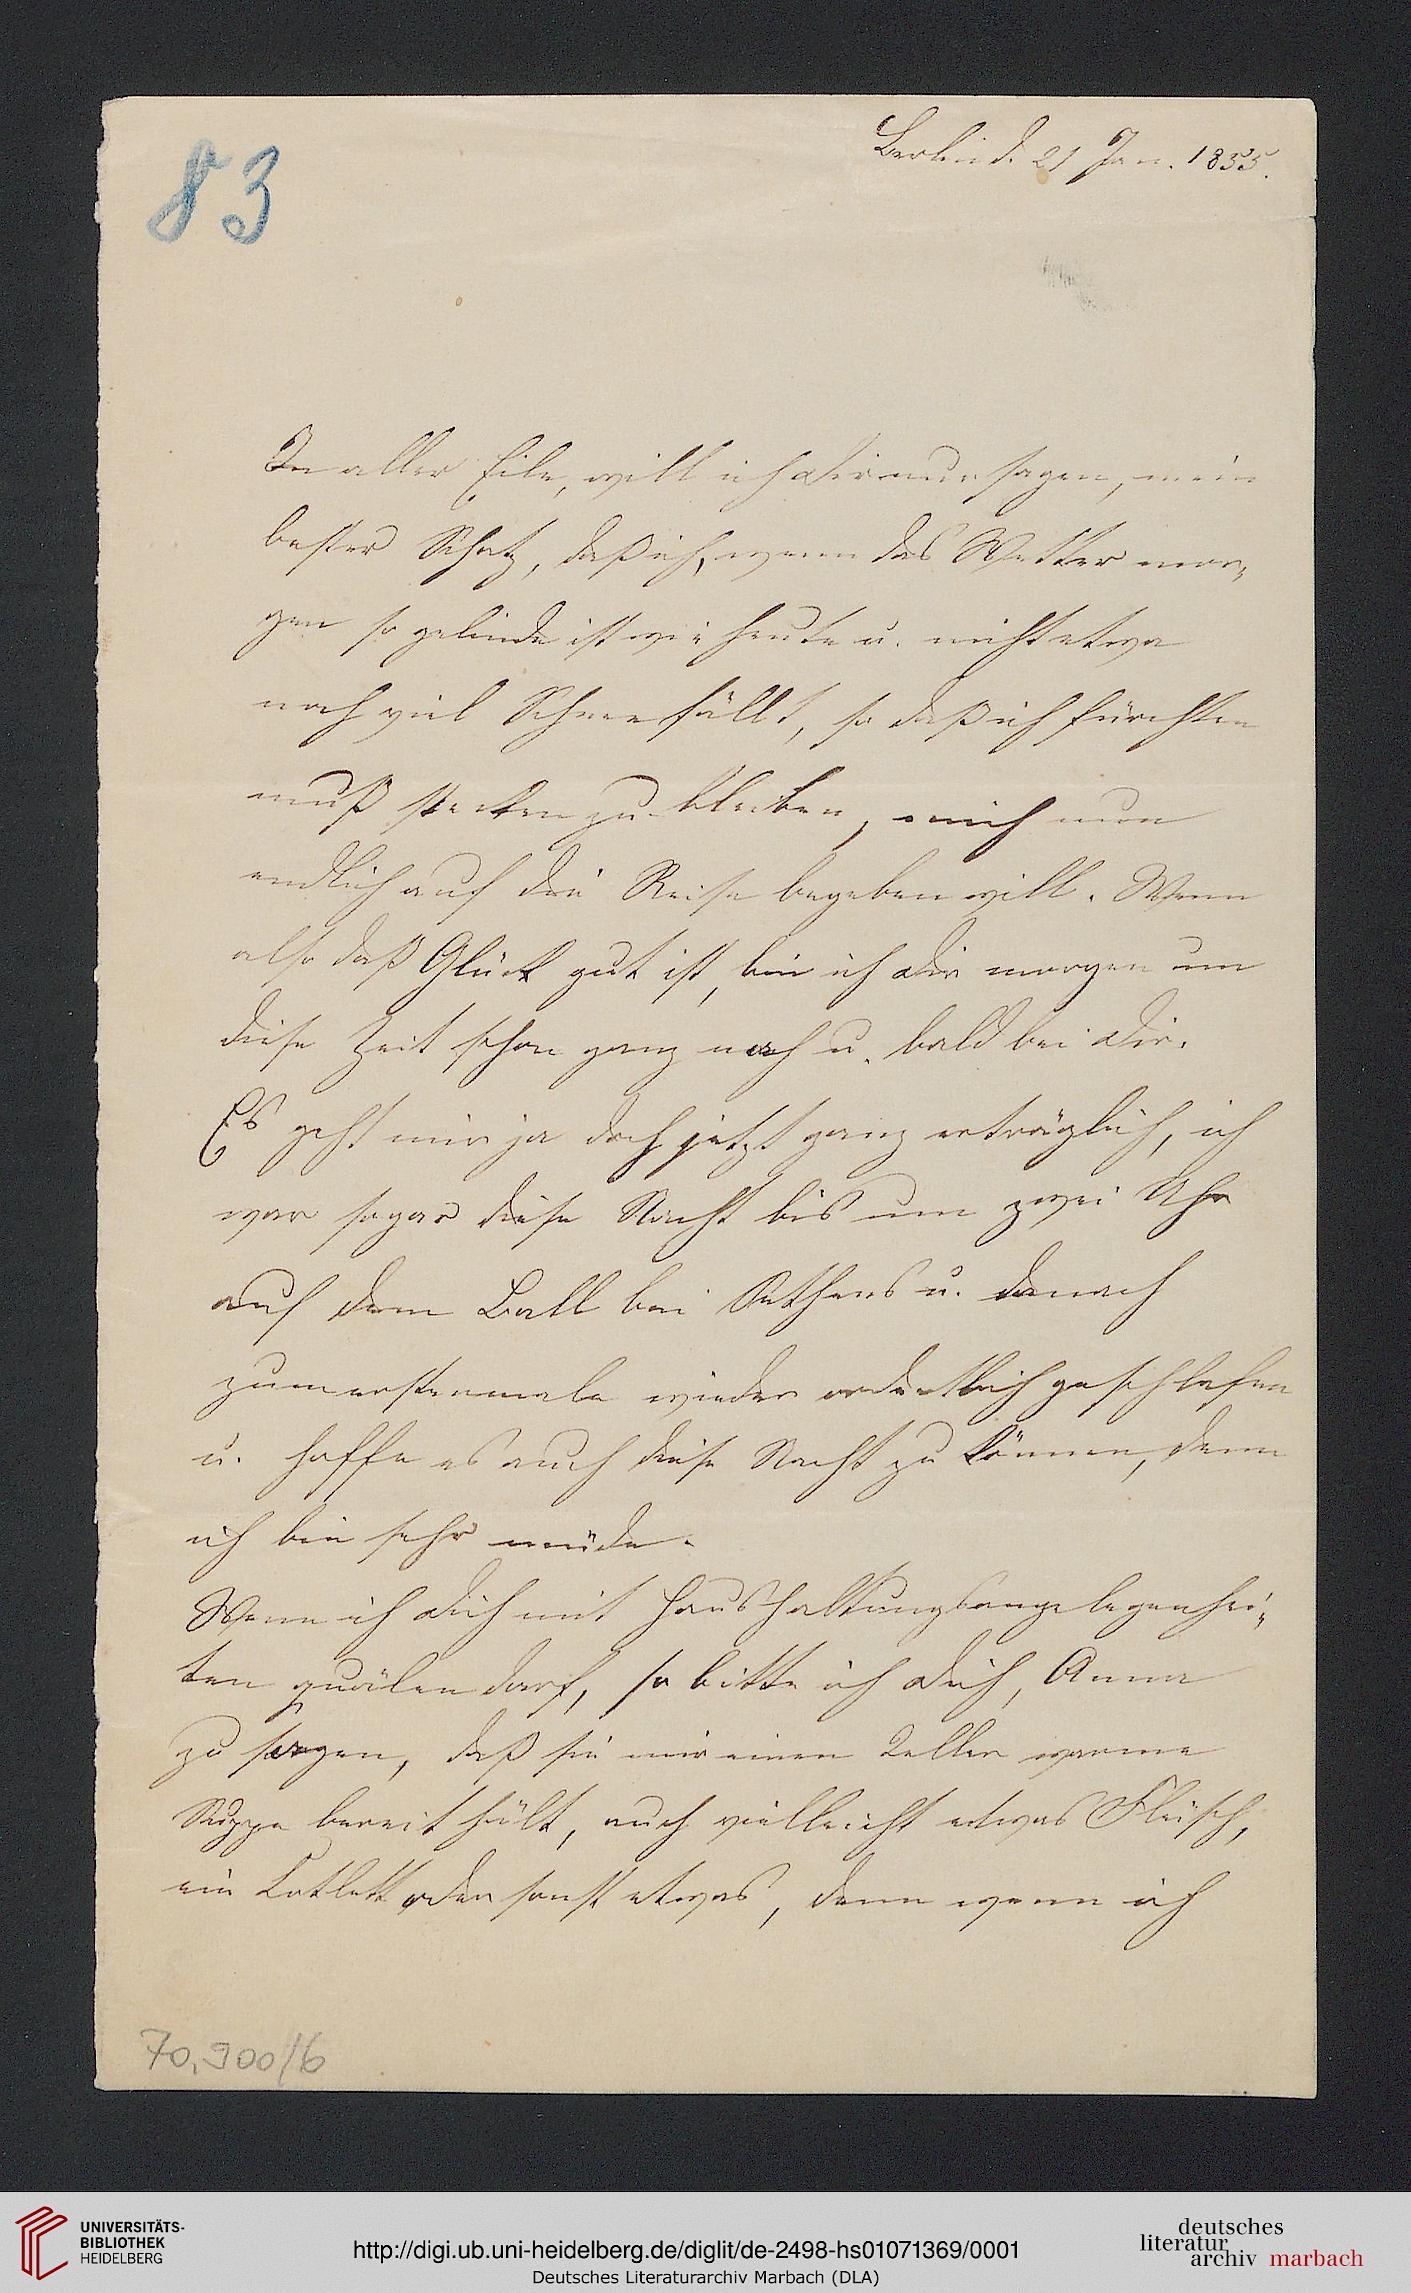 83
Berlin d. 21 Jan. 1855.
In aller Eile, will ich Dir nur sagen, mein
bester Schatz, daß ich, wenn das Wetter mor-
gen so gelinde ist wie heute u. nicht etwa
noch viel Schnee fällt, so daß ich fürchten
muß stecken zu bleiben, mich nun
endlich auf die Reise begeben will. Wenn
also daß Glück gut ist, bin ich Dir morgen um
diese Zeit schon ganz nah u. bald bei Dir.
Es geht mir ja doch jetzt ganz erträglich, ich
war sogar diese Nacht bis um zwei Uhr
auf dem Ball bei u. danach
zum erstenmale wieder ordentlich geschlafen
u. hoffe es auch diese Nacht zu können, denn
ich bin sehr müde.
Wenn ich Dich mit Haushaltungsangelegenhei-
ten quälen darf, so bitte ich Dich, Anna
zu sagen, daß sie mir einen Teller warme
Suppe bereit hält, auch vielleicht etwas Fleisch,
ein Cotlett oder sonst etwas, denn wenn ich
70.900/6
UNIVERSITÄTS-
BIBLIOTHEK
HEIDELBERG
http://digi.ub.uni-heidelberg.de/diglit/de-2498-hs01071369/0001
Deutsches Literaturarchiv Marbach (DLA)
deutsches
literatur
archiv marbach